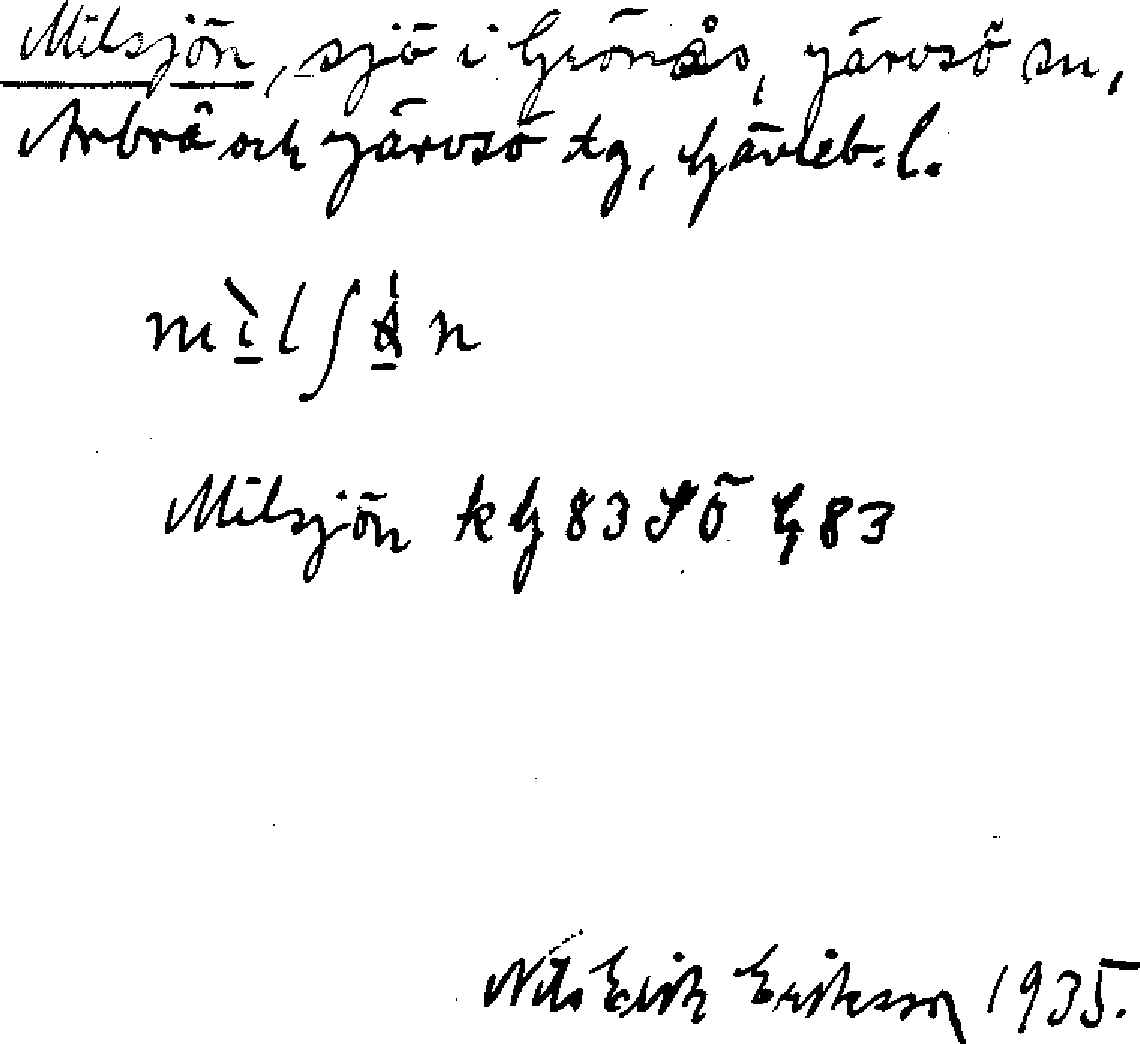 Milsjön, sjö i Grönås, Järvsö sn,
Arbrå och Järvsö tg, Gävleb. l.
Milsjön kG 83 SÖ G 83
Nils Erik Eriksson 1935.